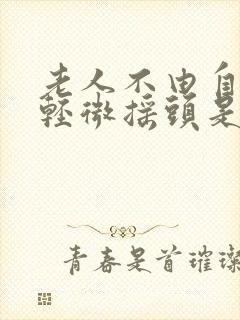 老人不由自
輕微搖頭是
青春是首璀璨